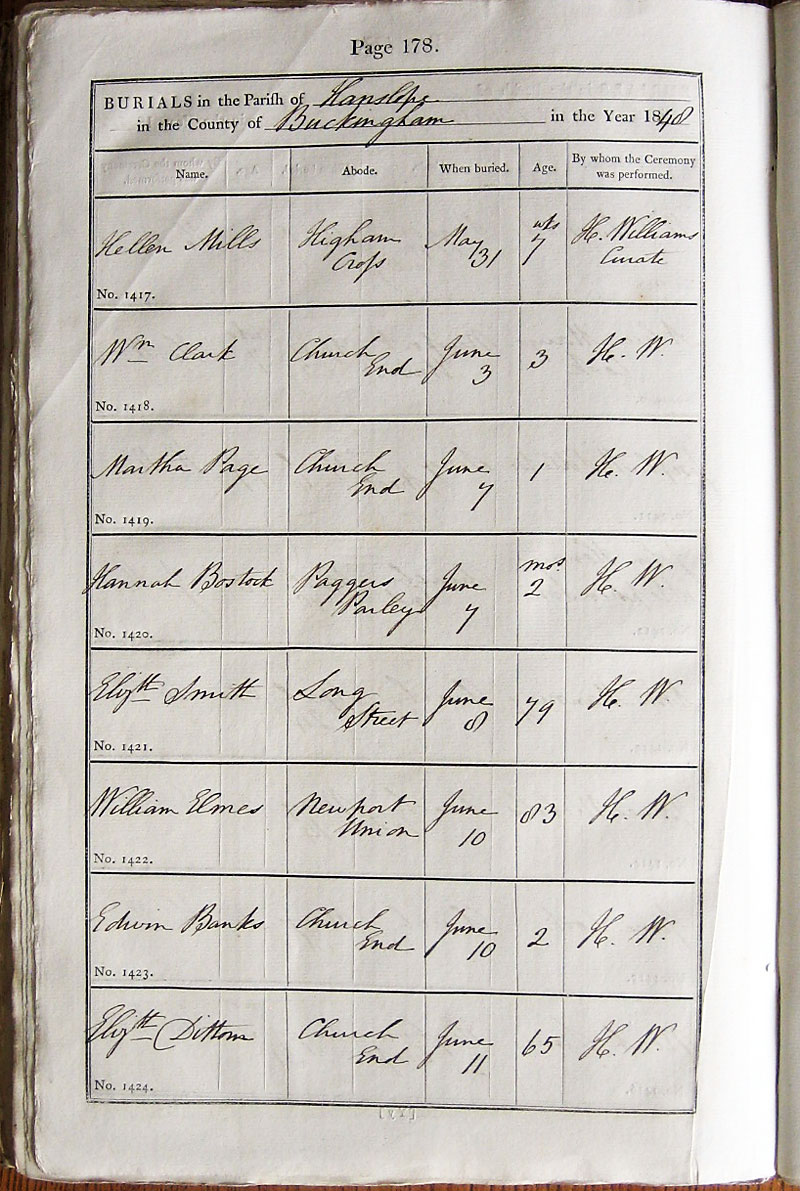 Page 178.
BURIALS in the Parish of Hanslope
in the County of Buckingham in the Year 1848
Name. Abode. When buried. Age. By whom the Ceremony was performed.
Hellen Mills Higham Cross May 31 wks 7 H. Williams Curate
No. 1417.
Wm Clark Church End June 3 3 H. W.
No. 1418.
Martha Page Church End June 7 1 H. W.
No. 1419.
Hannah Bostock Paggers Purley June 7 mos 2 H. W.
No. 1420.
Elizth Smith Long Street June 8 79 H. W.
No. 1421.
William Elmes Newport Union June 10 83 H. W.
No. 1422.
Edwin Banks Church End June 10 2 H. W.
No. 1423.
Elizth Dittom Church End June 11 65 H. W.
No. 1424.